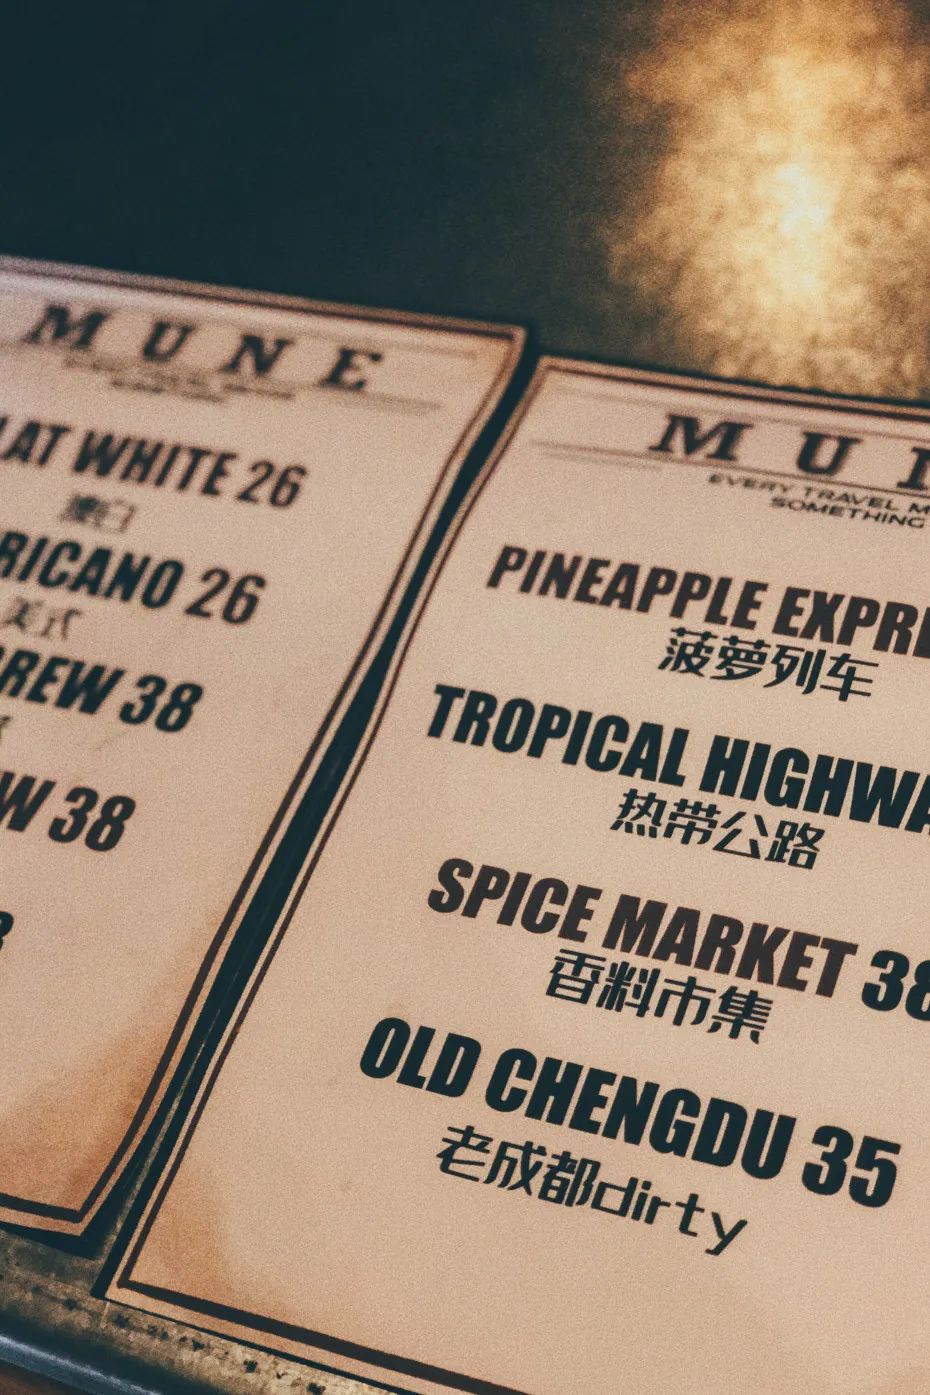 MUNE
LAT WHITE 26
澳白
RICANO 26
美式
REW 38
W 38
MU
EVERY TRAVEL M
SOMETHING
PINEAPPLE EXPRE
菠萝列车
TROPICAL HIGHWA
热带公路
SPICE MARKET 38
香料市集
OLD CHENGDU 35
老成都dirty